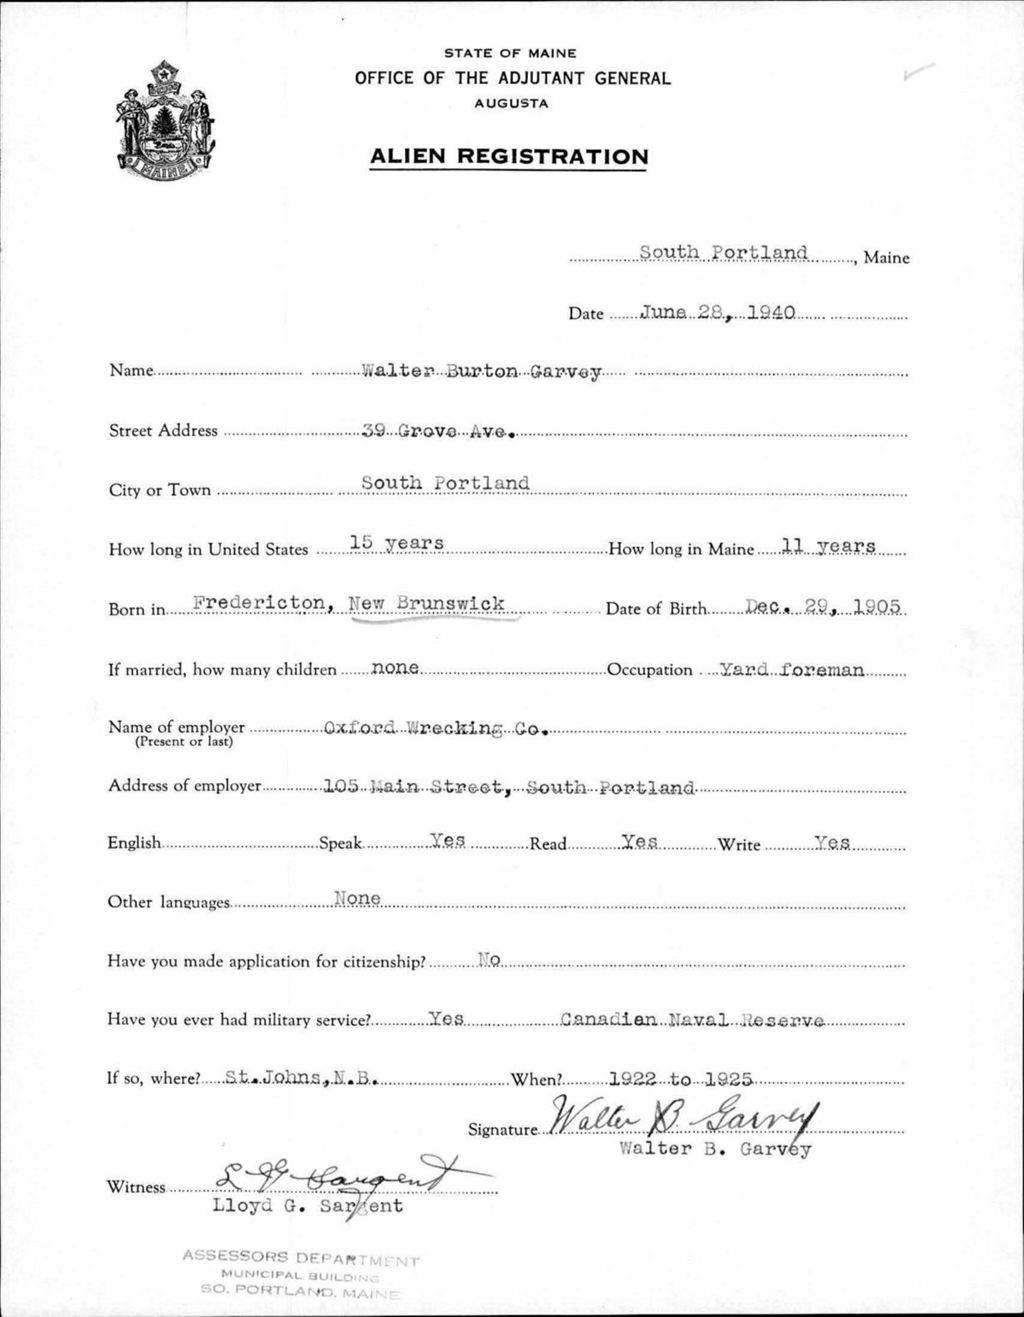 STATE OF MAINE
OFFICE OF THE ADJUTANT GENERAL
AUGUSTA
ALIEN REGISTRATION
MAINE
South Portland, Maine
Date June 28, 1940
Name Walter Burton Garvey
Street Address 39 Grove Ave.
City or Town South Portland
How long in United States 15 years How long in Maine 11 years
Born in Fredericton, New Brunswick Date of Birth Dec. 29, 1905
If married, how many children none Occupation Yard foreman
Name of employer Oxford Wrecking Co.
(Present or last)
Address of employer 105 Main Street, South Portland
English Speak Yes Read Yes Write Yes
Other languages None
Have you made application for citizenship? No
Have you ever had military service? Yes Canadian Naval Reserve
If so, where? St. Johns, N.B. When? 1922 to 1925
Signature Walter B. Garvey
Walter B. Garvey
Witness L G Sargent
Lloyd G. Sargent
ASSESSORS DEPARTMENT
MUNICIPAL BUILDING
SO. PORTLAND, MAINE